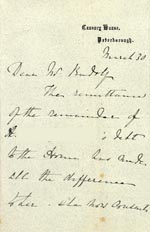 Canonry House,
Peterborough.
March 30
Dear Mr. Rudolf
The remittance
of the remainder of
's debt
to the Home has made
all the difference
to her. She now consents